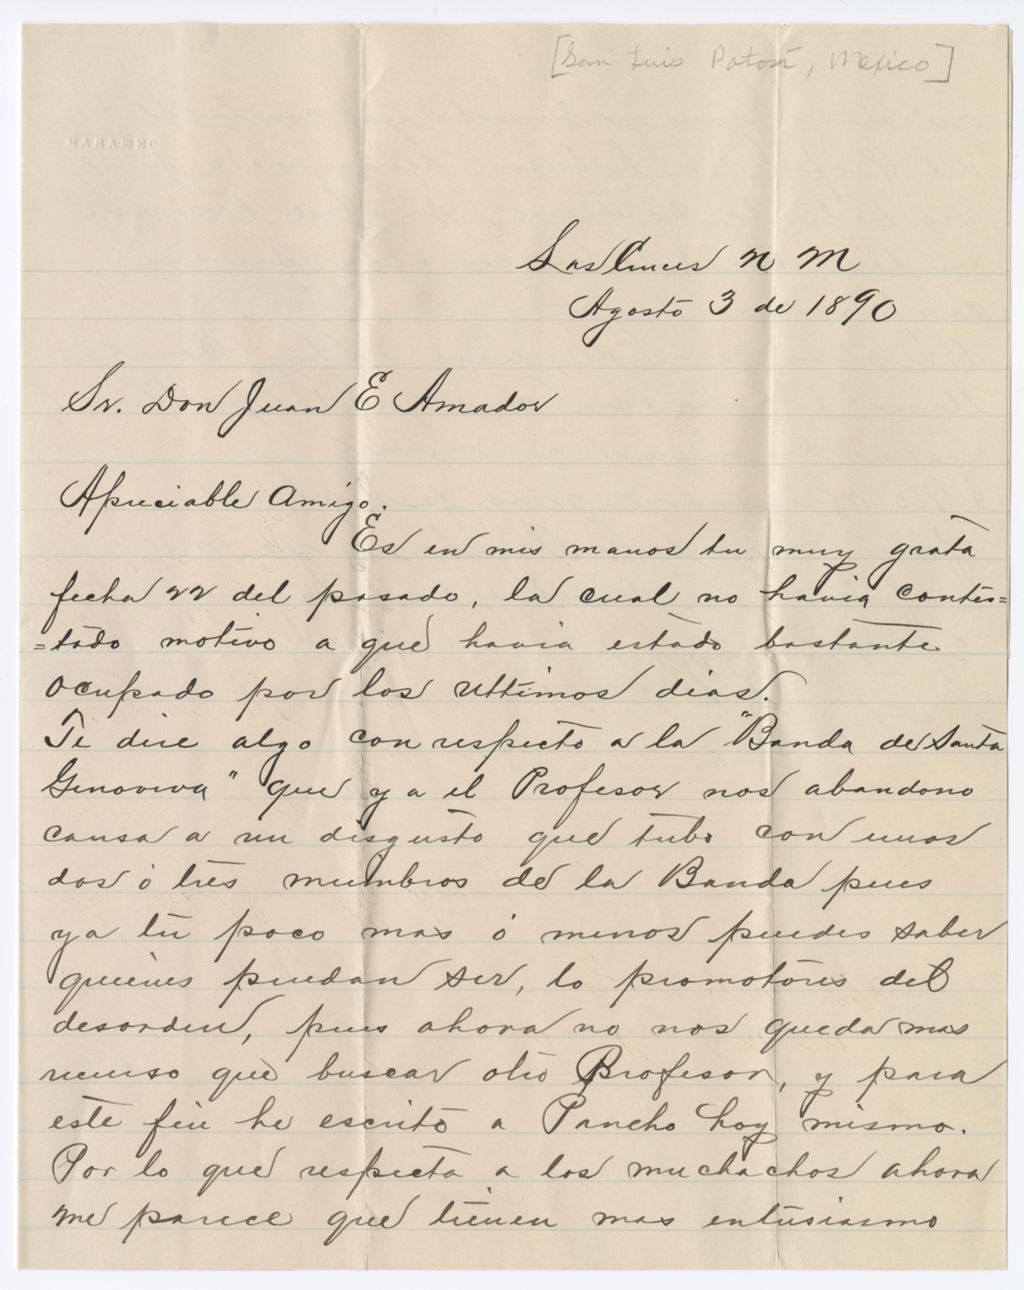 [San Luis Potosí, Mexico]
MARAMEC
Las Cruces N M
Agosto 3 de 1890
Sr. Don Juan E Amador
Apreciable Amigo.
Es en mis manos tu muy grata
fecha 22 del pasado, la cual no havia contes=
=tado motivo a que havia estado bastante
ocupado por los ultimos dias.
Te dire algo con respecto a la "Banda de Santa
Genoveva" que ya el Profesor nos abandono
causa a un disgusto que tubo con unos
dos ó tres miembros de la Banda pues
ya tu poco mas ó menos puedes saber
quienes puedan ser, lo promotores del
desorden, pues ahora no nos queda mas
recurso que buscar otro Profesor, y para
este fin he escrito a Pancho hoy mismo.
Por lo que respecta a los muchachos ahora
me parece que tienen mas entusiasmo